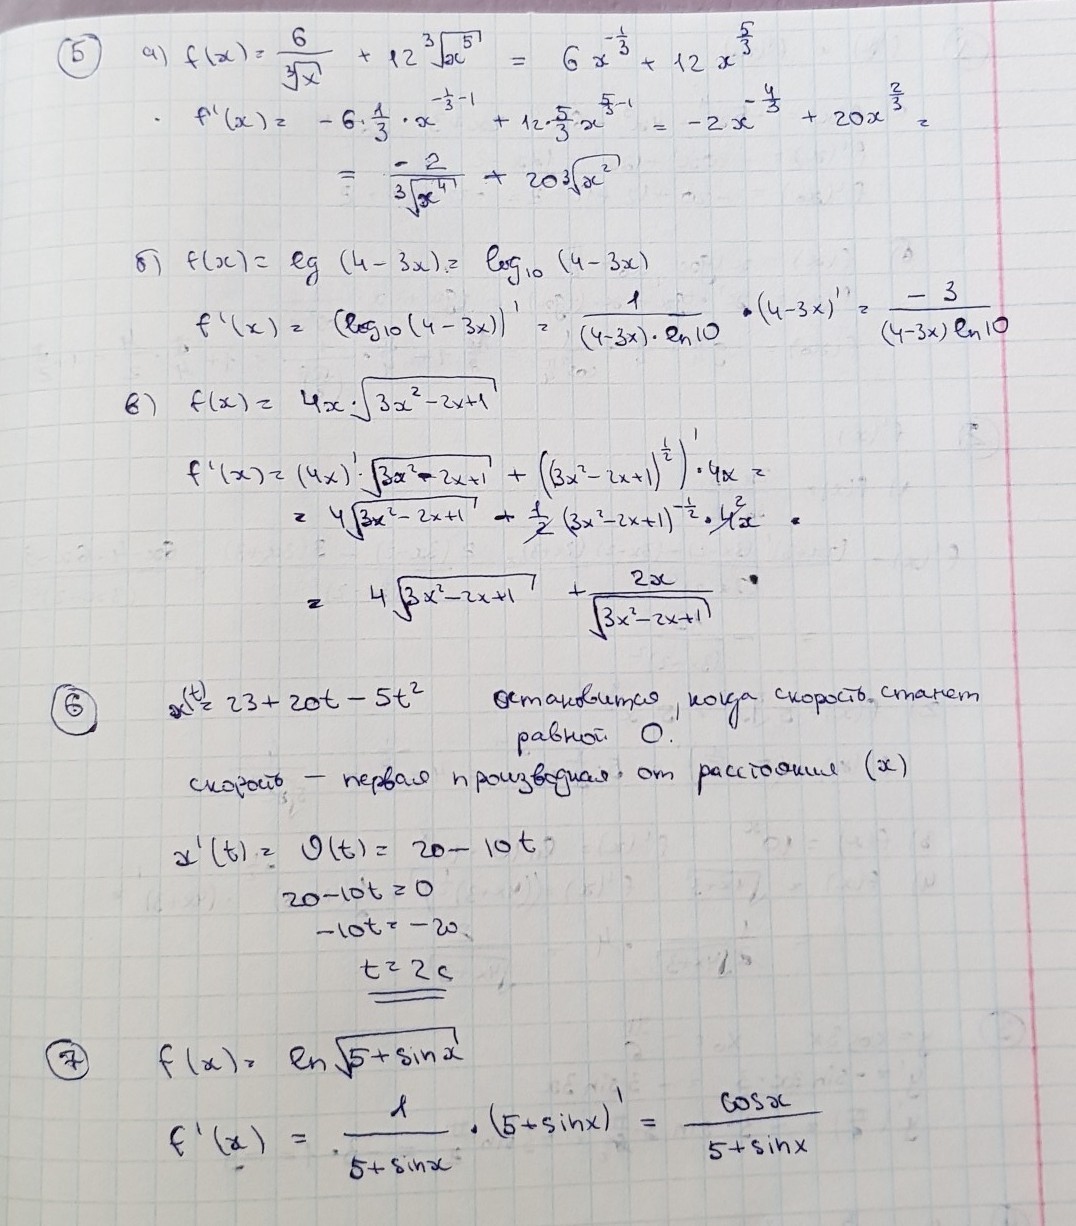 5 а) f(x) = 6/∛x + 12∛x⁵ = 6x^(-1/3) + 12x^(5/3)
f'(x) = -6·1/3·x^(-1/3-1) + 12·5/3·x^(5/3-1) = -2x^(-4/3) + 20x^(2/3) =
= -2/∛x⁴ + 20∛x²
б) f(x) = lg (4-3x) = log₁₀ (4-3x)
f'(x) = (log₁₀(4-3x))' = 1/((4-3x)·ln10) · (4-3x)' = -3/((4-3x)ln10)
в) f(x) = 4x·√(3x²-2x+1)
f'(x) = (4x)'·√(3x²-2x+1) + ((3x²-2x+1)^(1/2))'·4x =
= 4√(3x²-2x+1) + 1/2 (3x²-2x+1)^(-1/2)·4²x ·
= 4√(3x²-2x+1) + 2x/√(3x²-2x+1) ·
6 x(t) = 23+20t-5t² остановится, когда скорость станет
равной 0.
скорость – первая производная от расстояния (x)
x'(t) = υ(t) = 20-10t
20-10t=0
-10t=-20
t=2с
7 f(x) = ln√(5+sinx)
f'(x) = 1/(5+sinx) · (5+sinx)' = cosx/(5+sinx)